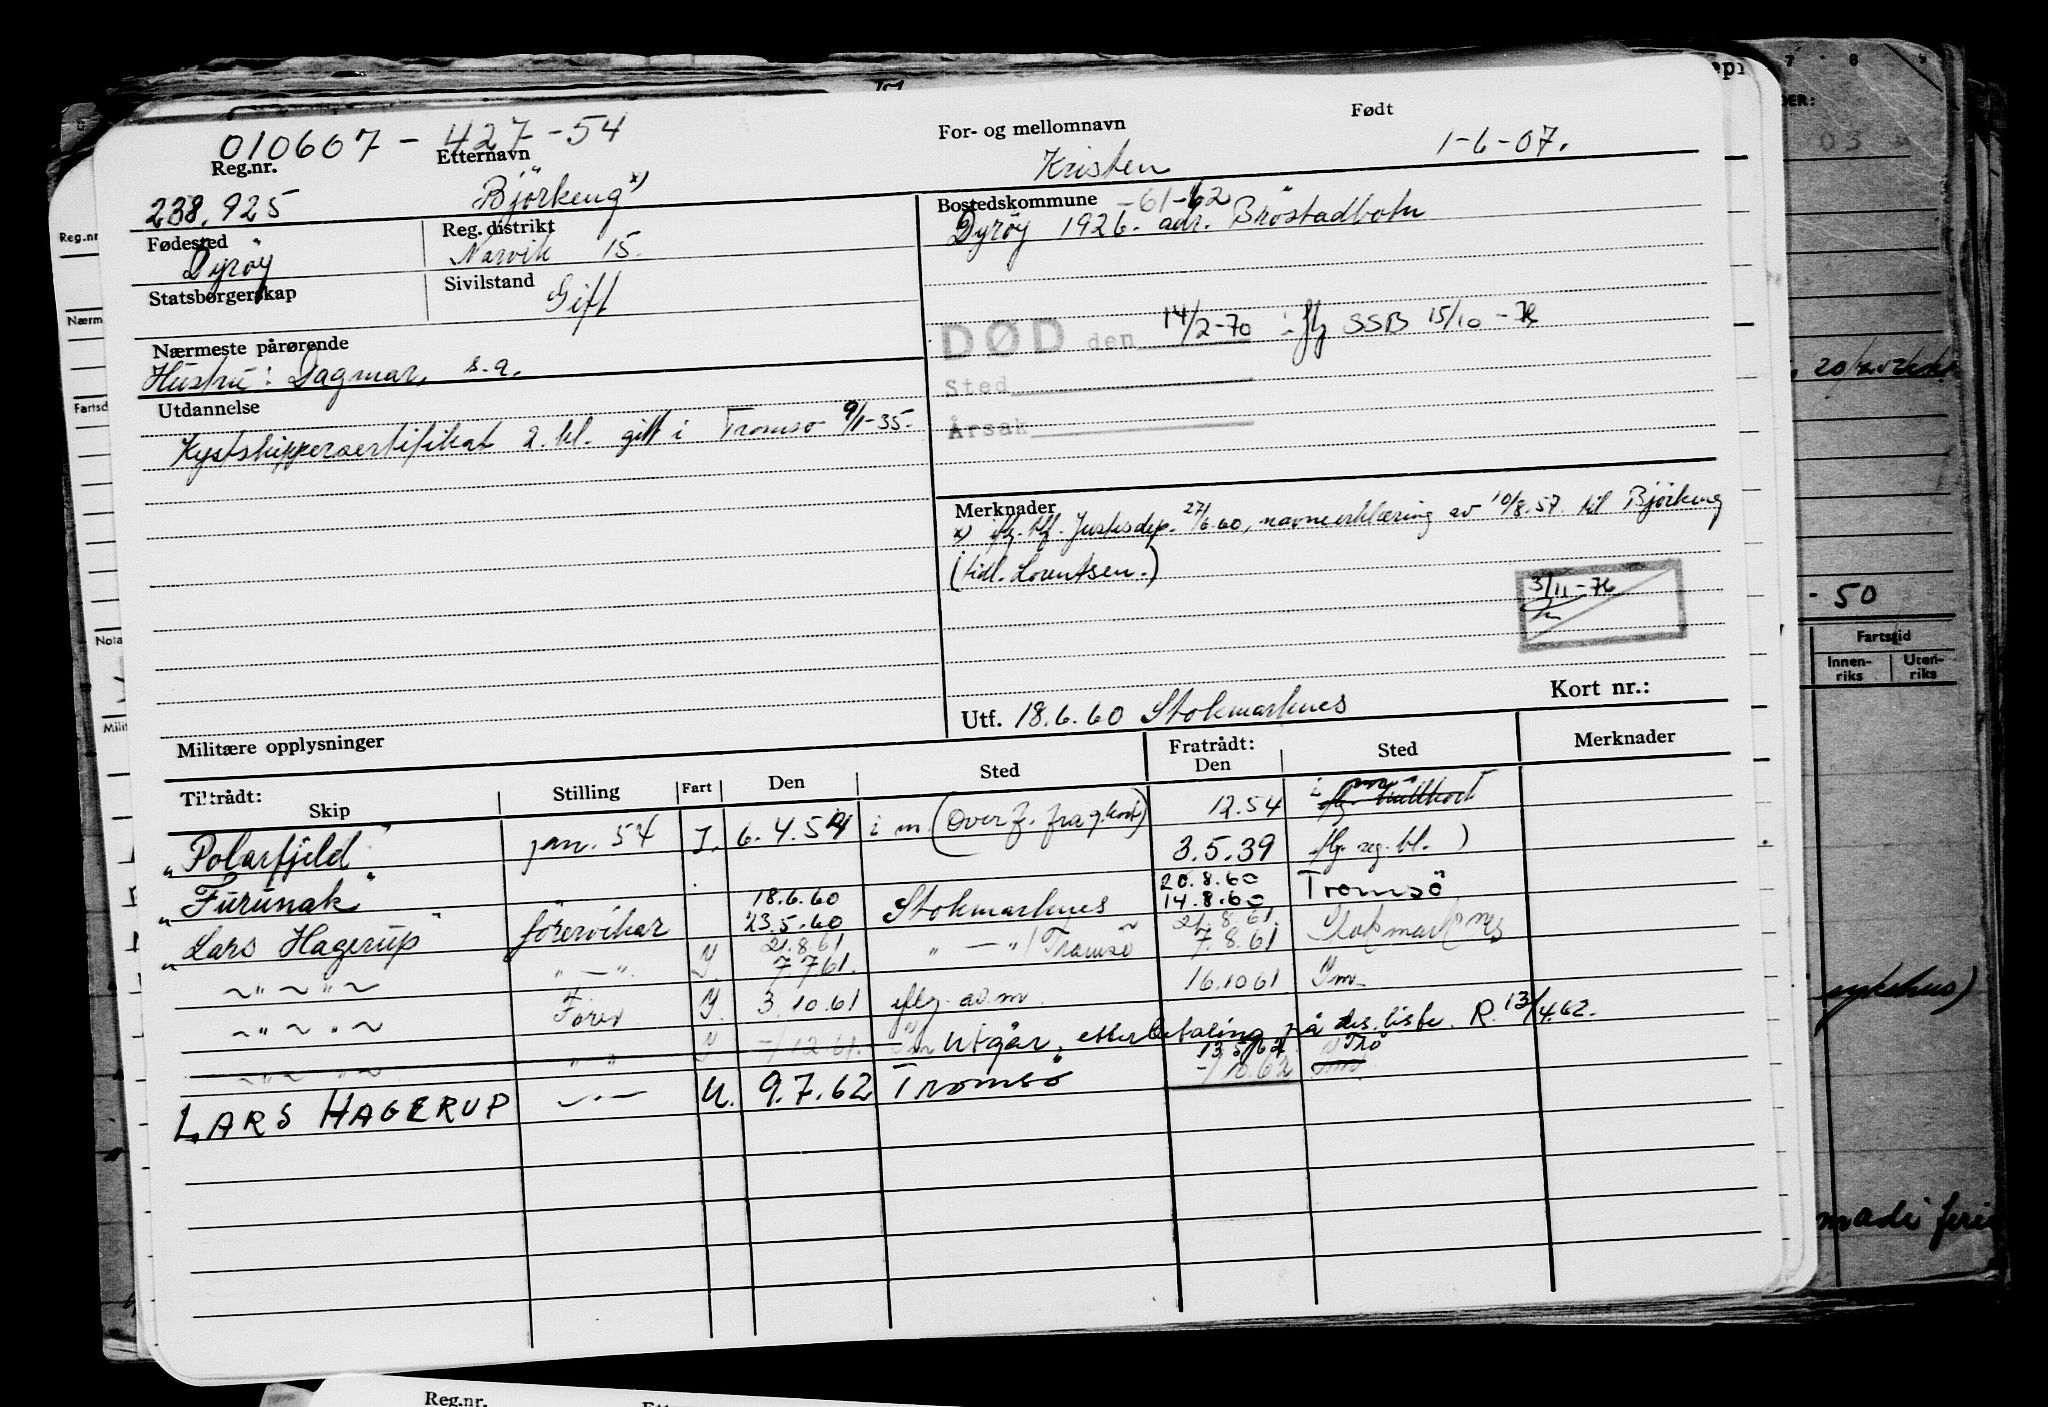 010607 - 427 - 54
Reg.nr. Etternavn For- og mellomnavn Født
238.925 Björkeng x) Kristen 1-6-07.
Fødested Reg. distrikt Bostedskommune -61-62
Dyröy Narvik 15. Dyröy 1926. adr. Bröstadbotn
Statsborgerskap Sivilstand
Gift
DØD den 14/2-70 SSB 15/10 -
Nærmeste pårørende
Hustru: Dagmar, s.a.
Sted
Utdannelse
Årsak
Kystskippersertifikat 2. kl. gitt i Tromsö 9/1-35.
Merknader
x) iflg. Justisdep. 27/6.60, navneerklæring av 10/8.57 til Björkeng
(tidl. Lorentsen.)
3/11-76
Utf. 18.6.60 Stokmarknes Kort nr.:
Militære opplysninger
Tiltrådt: Fratrådt:
Skip Stilling Fart Den Sted Den Sted Merknader
"Polarfjeld" jan. 54 I. 6.4.54 i m. (Overf. fra g.kort) 12.54 i m
"Furunak" 3.5.39 iflg. reg. bl. )
18.6.60 20.8.60
"Lars Hagerup" förervikar 23.5.60 Stokmarknes 14.8.60 Tromsö
21.8.61 21.8.61.
~ " ~ " ~ " — " . Y 7.7.61. " — " / Tromsö 7.8.61 Stokmarknes
~ " ~ " ~ Förer Y. 3.10.61 iflg. av.m. 16.10.61 Ym
~ " ~ " ~ " " Y -/12.61. Utgår, etterbetaling på des. liste. R. 13/4.62.
13.5/62 Trö
-/10.62
LARS HAGERUP — " — U. 9.7.62 Tromsö
Reg.nr.
Reg.nr
Nærm
Fartsd
Nota
Milit
7 8
DER:
03
- 50
Fartstid
Innen-
riks
Uten-
riks
sykehus)